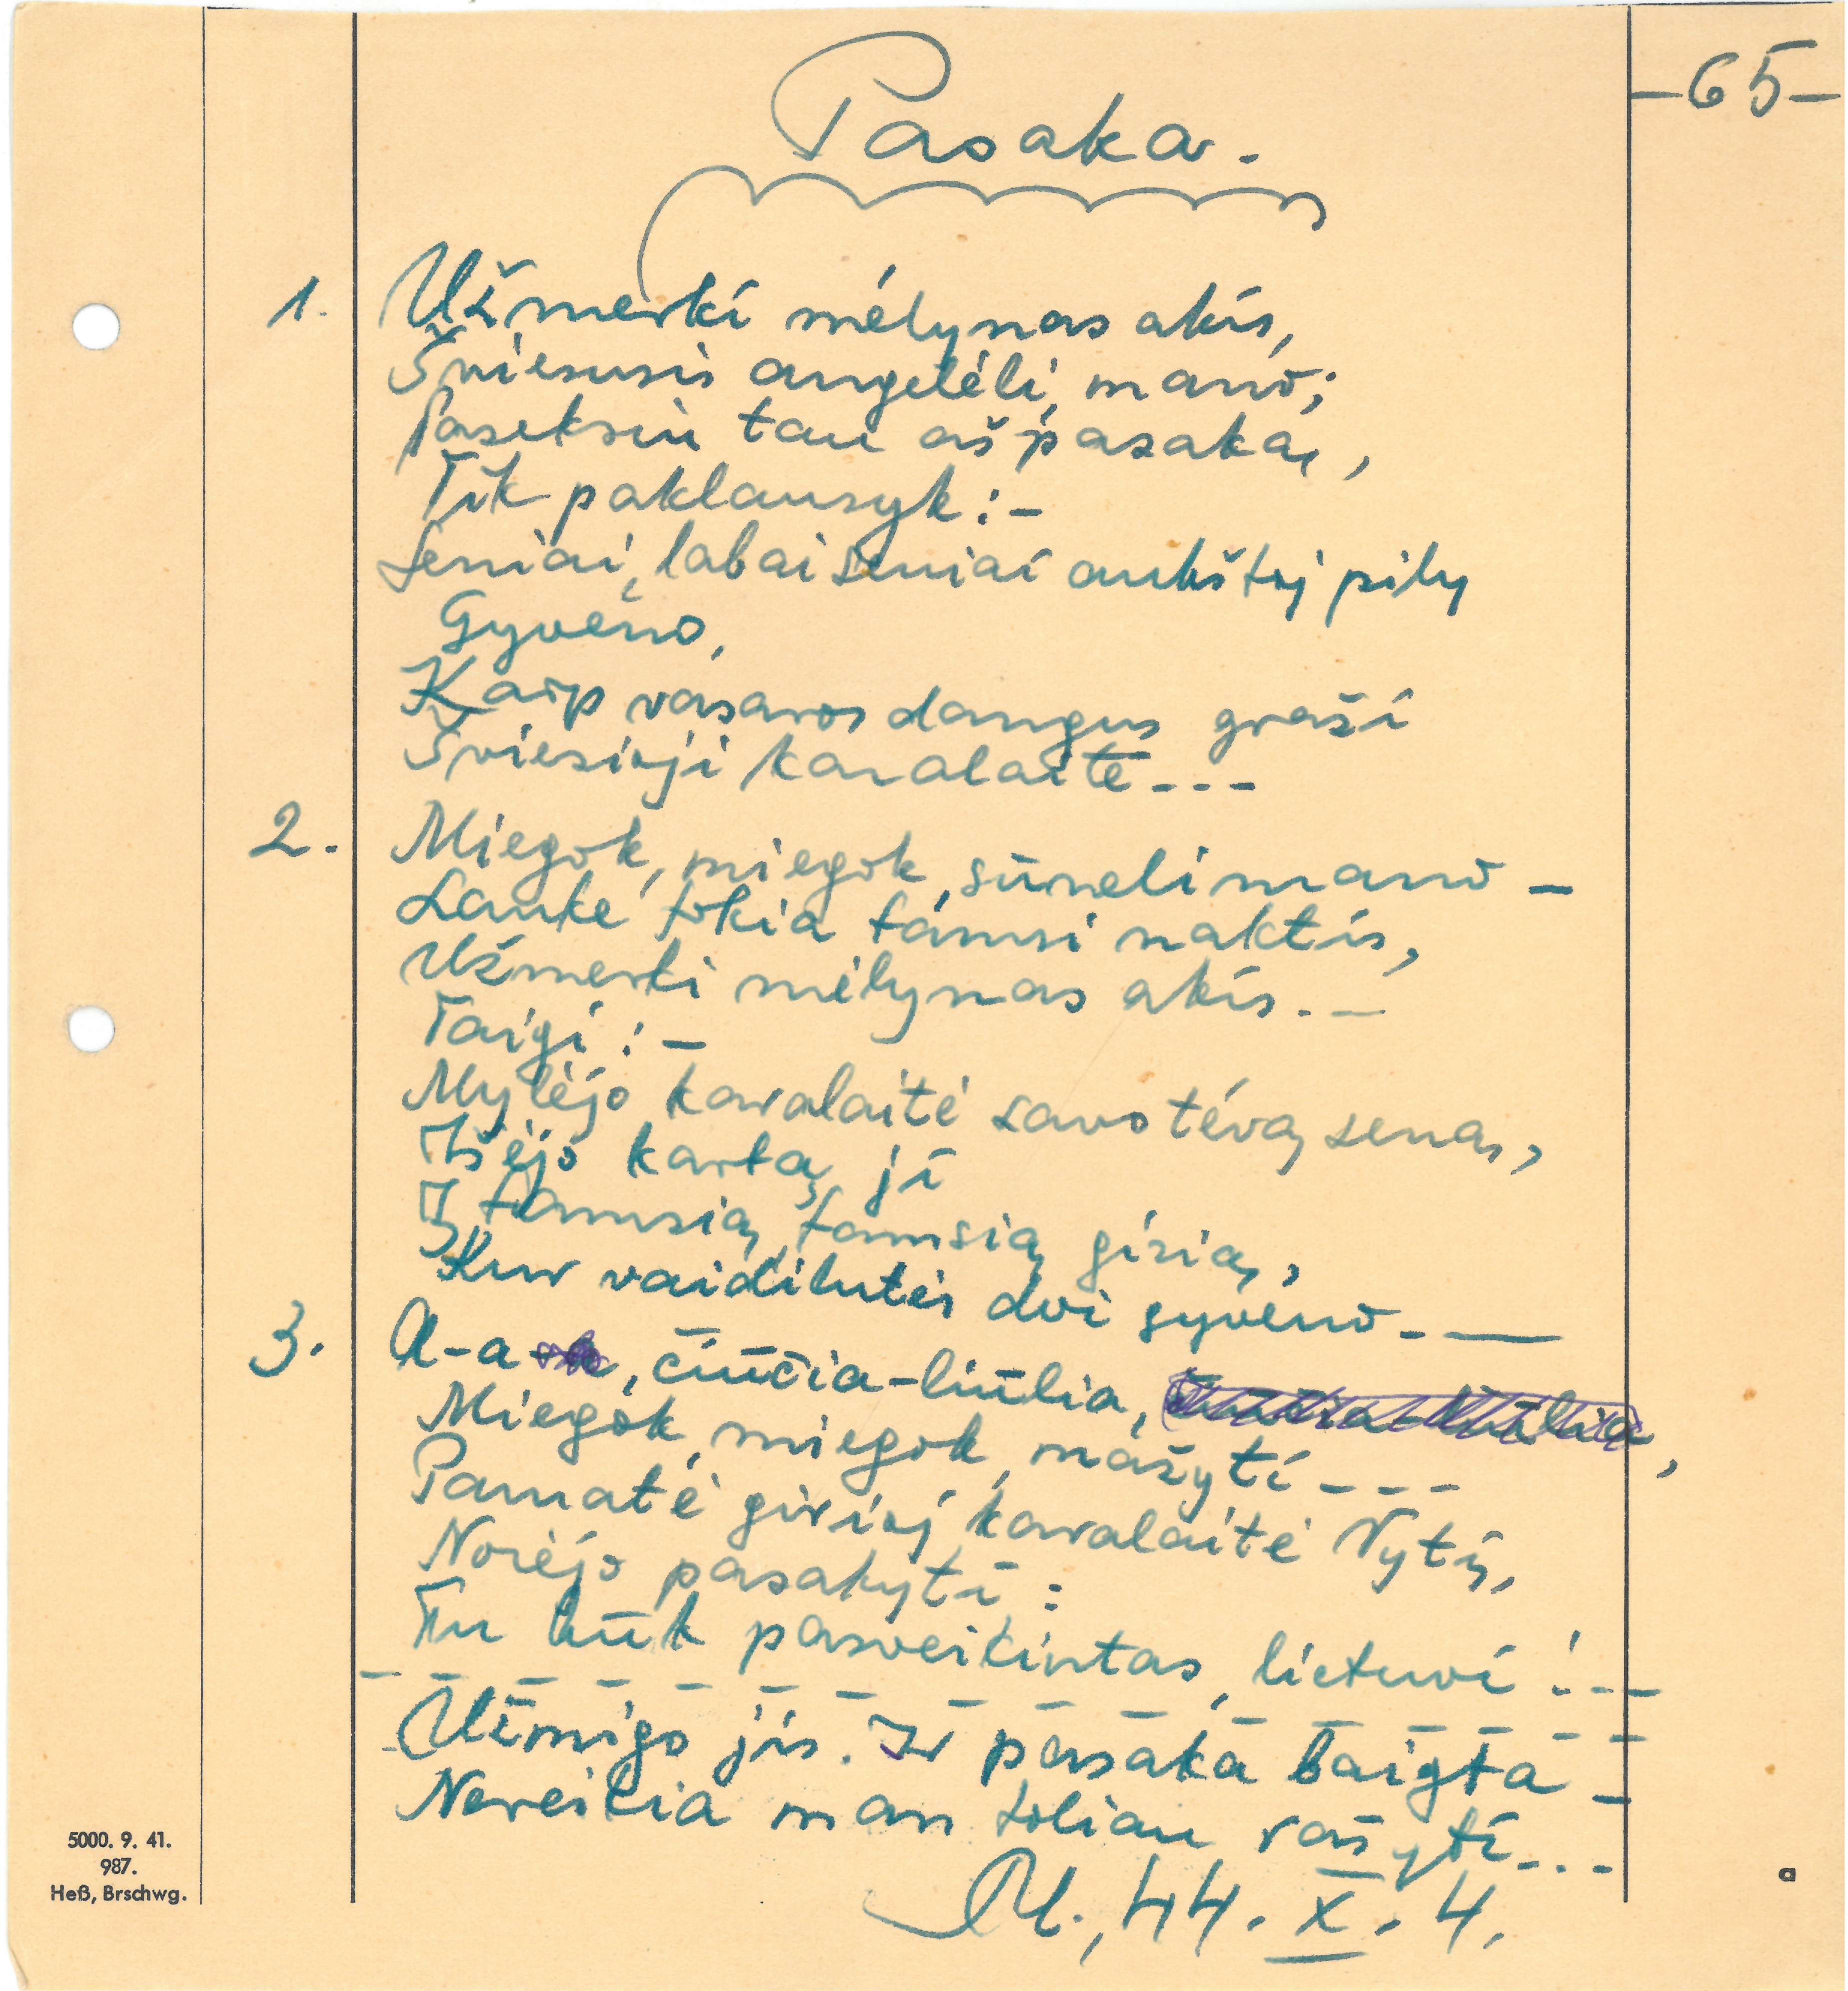 -65-
Pasaka.
1. Užmerki mėlynas akis,
Šviesusis angelėli, mano;
Paseksiu tau aš pasaką,
Tik paklausyk: -
Seniai, labai seniai aukštoj pily
Gyveno,
Kaip vasaros dangus graži
Šviesioji karalaitė - - -
2. Miegok, miegok, sūneli mano -
Lauke tokia tamsi naktis,
Užmerki mėlynas akis. -
Taigi: -
Mylėjo karalaitė savo tėvą seną,
Išėjo kartą ji
Į tamsią, tamsią girią,
Kur vaidilutės dvi gyveno - -
3. A-a, čiūčia-liūlia, čiūčia-liūlia,
Miegok, miegok, mažyti - - -
Pamatė girioj karalaitė Vytį,
Norėjo pasakyti:
Tu būk pasveikintas, lietuvi! - -
Užmigo jis. Ir pasaka baigta -
Nereikia man toliau rašyti...
M., 44. X. 4.
5000. 9. 41.
987.
Heß, Brschwg.
a